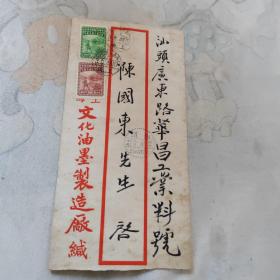 汕頭廣東路華昌工業料號
陳國東先生 啓
上海
文化油墨製造廠緘